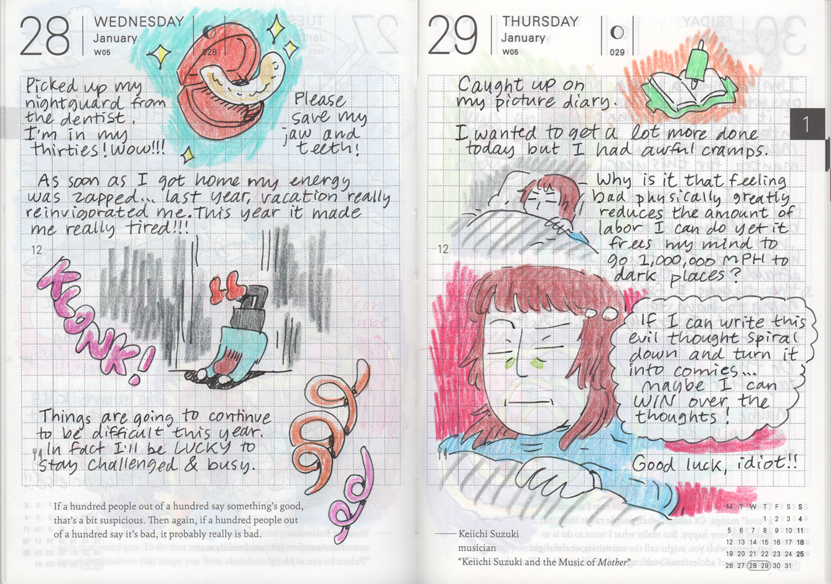 28
WEDNESDAY
January
W05
028
Picked up my
nightguard from
the dentist.
I'm in my
thirties! Wow!!!
Please
save my
jaw and
teeth!
As soon as I got home my energy
was zapped... last year, vacation really
reinvigorated me. This year it made
me really tired!!!
12
KLONK!
Things are going to continue
to be difficult this year.
In fact I'll be LUCKY to
stay challenged & busy.
If a hundred people out of a hundred say something's good,
that's a bit suspicious. Then again, if a hundred people out
of a hundred say it's bad, it probably really is bad.
29
THURSDAY
January
W05
029
1
Caught up on
my picture diary.
I wanted to get a lot more done
today but I had awful cramps.
Why is it that feeling
bad physically greatly
reduces the amount of
labor I can do yet it
frees my mind to
go 1,000,000 MPH to
dark places?
12
If I can write this
evil thought spiral
down and turn it
into comics...
maybe I can
WIN over the
thoughts!
Good luck, idiot!!
Keiichi Suzuki
musician
"Keiichi Suzuki and the Music of Mother"
M T W T F S S
1 2 3 4
5 6 7 8 9 10 11
12 13 14 15 16 17 18
19 20 21 22 23 24 25
26 27 28 29 30 31